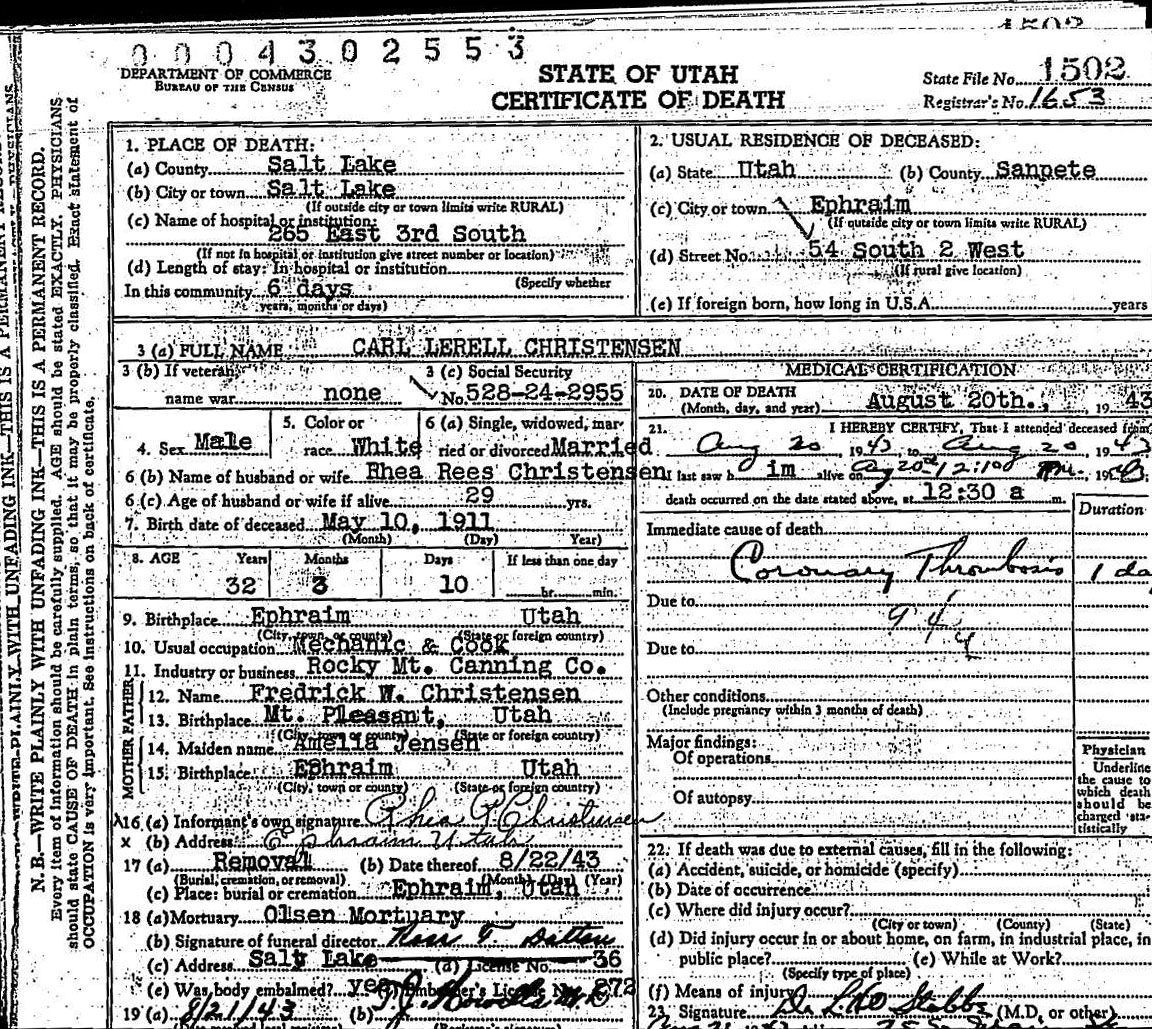 1502
0004302553
DEPARTMENT OF COMMERCE
BUREAU OF THE CENSUS
STATE OF UTAH
CERTIFICATE OF DEATH
State File No. 1502
Registrar's No. 1653
N. B.—WRITE PLAINLY WITH UNFADING INK—THIS IS A PERMANENT RECORD.
Every item of information should be carefully supplied. AGE should be stated EXACTLY. PHYSICIANS
should state CAUSE OF DEATH in plain terms, so that it may be properly classified. Exact statement of
OCCUPATION is very important. See instructions on back of certificate.
1. PLACE OF DEATH:
(a) County Salt Lake
(b) City or town Salt Lake
(If outside city or town limits write RURAL)
(c) Name of hospital or institution:
265 East 3rd South
(If not in hospital or institution give street number or location)
(d) Length of stay: In hospital or institution
(Specify whether
In this community 6 days
years, months or days)
2. USUAL RESIDENCE OF DECEASED:
(a) State Utah (b) County Sanpete
(c) City or town Ephraim
(If outside city or town limits write RURAL)
(d) Street No. 54 South 2 West
(If rural give location)
(e) If foreign born, how long in U.S.A. years
3 (a) FULL NAME CARL LERELL CHRISTENSEN
3 (b) If veteran, name war none
3 (c) Social Security No. 528-24-2955
4. Sex Male
5. Color or race White
6 (a) Single, widowed, married or divorced Married
6 (b) Name of husband or wife Rhea Rees Christensen
6 (c) Age of husband or wife if alive 29 yrs.
7. Birth date of deceased May 10, 1911
(Month) (Day) Year)
8. AGE Years Months Days If less than one day
32 3 10 hr. min.
9. Birthplace Ephraim Utah
(City, town, or county) (State or foreign country)
10. Usual occupation Mechanic & Cook
11. Industry or business Rocky Mt. Canning Co.
FATHER
12. Name Fredrick W. Christensen
13. Birthplace Mt. Pleasant, Utah
(City, town or county) (State or foreign country)
MOTHER
14. Maiden name Amelia Jensen
15. Birthplace Ephraim Utah
(City, town or county) (State or foreign country)
16 (a) Informant's own signature Rhea R Christensen
x (b) Address Ephraim Utah
17 (a) Removal (b) Date thereof 8/22/43
(Burial, cremation, or removal) (Month) (Day) (Year)
(c) Place: burial or cremation Ephraim, Utah
18 (a) Mortuary Olsen Mortuary
(b) Signature of funeral director Ross T. Dalton
(c) Address Salt Lake (d) License No. 36
(e) Was body embalmed? yes Embalmer's License No. 272
19 (a) 8/21/43 (b)
MEDICAL CERTIFICATION
20. DATE OF DEATH
(Month, day, and year) August 20th., 1943
21. I HEREBY CERTIFY, That I attended deceased from
Aug 20 1943 to Aug 20 1943
I last saw h im alive on Aug 20 12:10
death occurred on the date stated above, at 12:30 a m.
Duration
Immediate cause of death
Coronary Thrombosis 1 da
Due to
94
Due to
Other conditions
(Include pregnancy within 3 months of death)
Major findings:
Of operations
Of autopsy
Physician
Underline
the cause to
which death
should be
charged sta-
tistically
22. If death was due to external causes, fill in the following:
(a) Accident, suicide, or homicide (specify)
(b) Date of occurrence
(c) Where did injury occur?
(City or town) (County) (State)
(d) Did injury occur in or about home, on farm, in industrial place, in
public place? (e) While at Work?
(Specify type of place)
(f) Means of injury
23. Signature Dr Stobbs (M.D. or other)